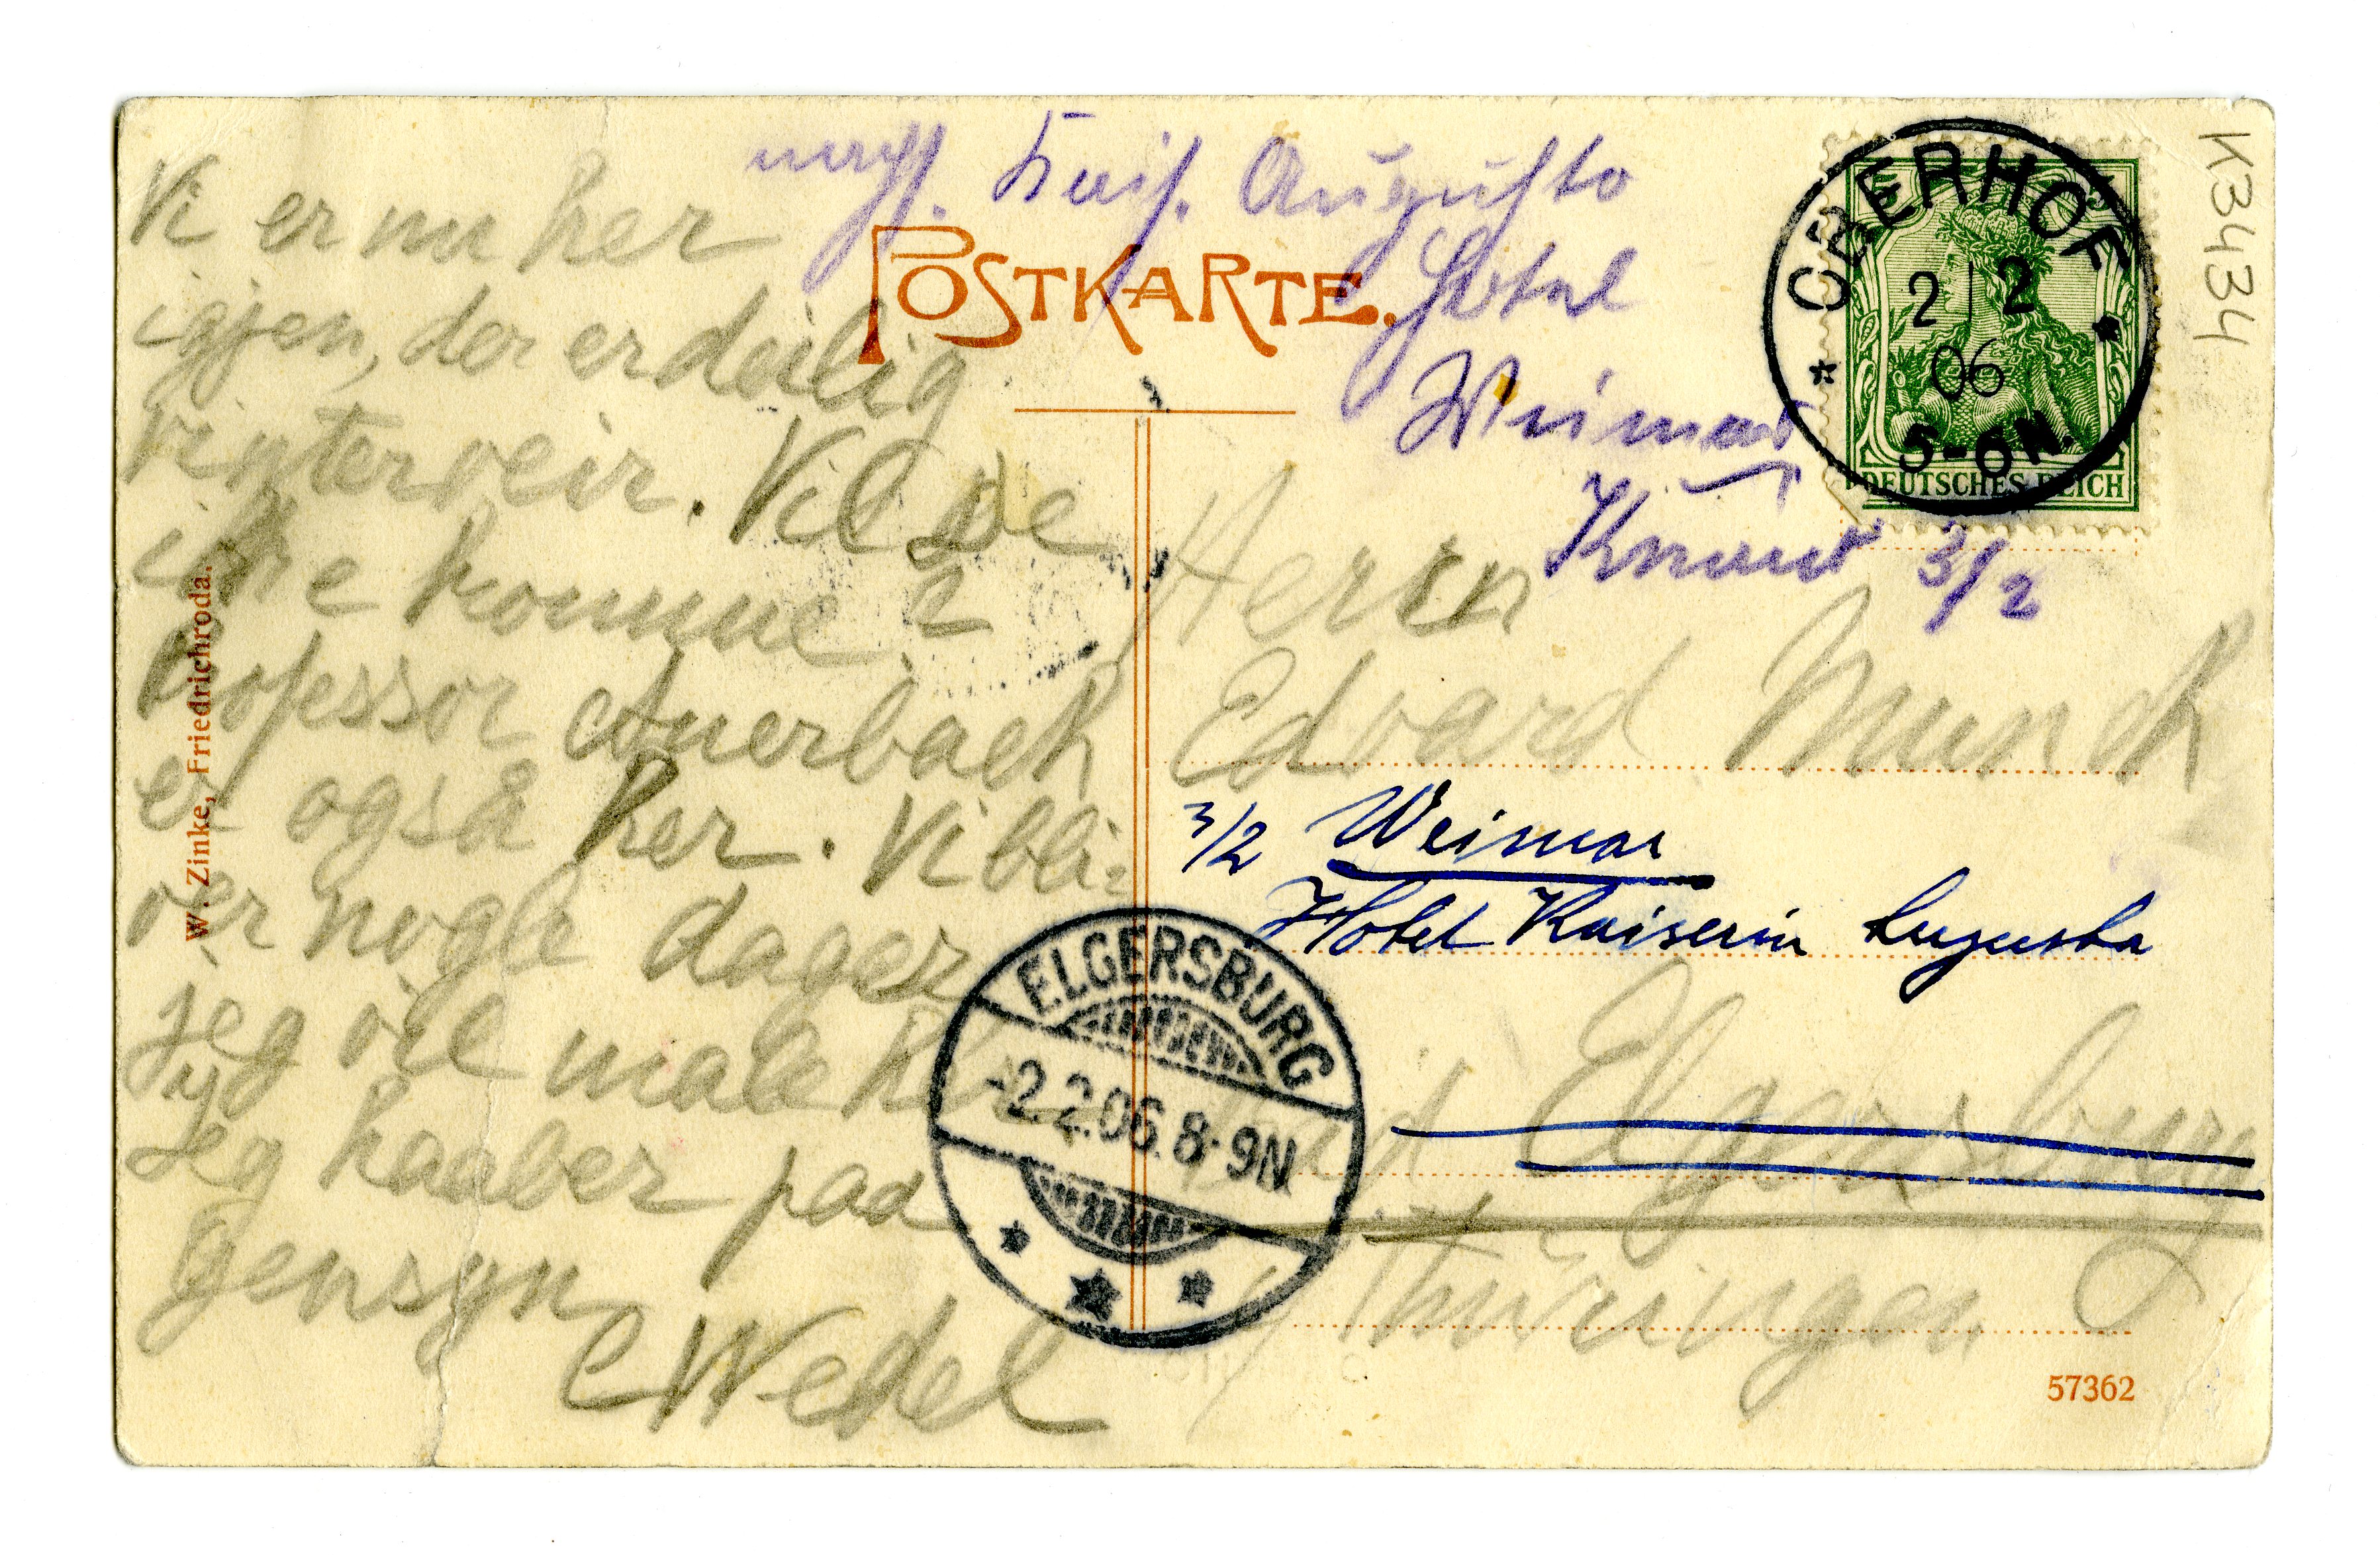 Vi er nu her
igjen, der er deilig
vinterveir. Vil De
ikke komme?
Professor Auerbach
er også her. Vi bli-
ver nogle dager
Jeg vil male
Jeg haaber paa
gensyn
C Wedel
W. Zinke, Friedrichroda.
Kais. Augusta
Hotel
Weimar
3/2
POSTKARTE.
OBERHOF
2/2
06
5-6N.
DEUTSCHES REICH
K3434
Herrn
Edvard Munch
3/2 Weimar
Hotel Kaiserin Augusta
Bad Elgersburg
Thüringen
ELGERSBURG
-2.2.06.8-9N.
57362